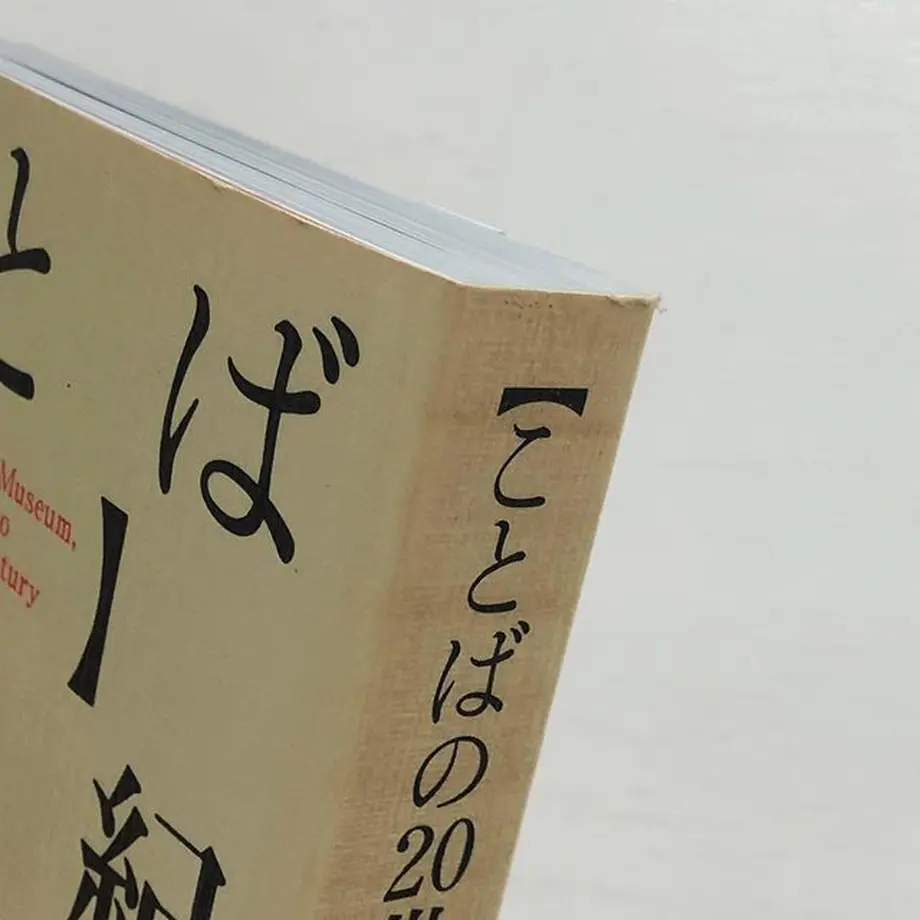 とば】
紀
Museum,
o
tury
【ことばの20世